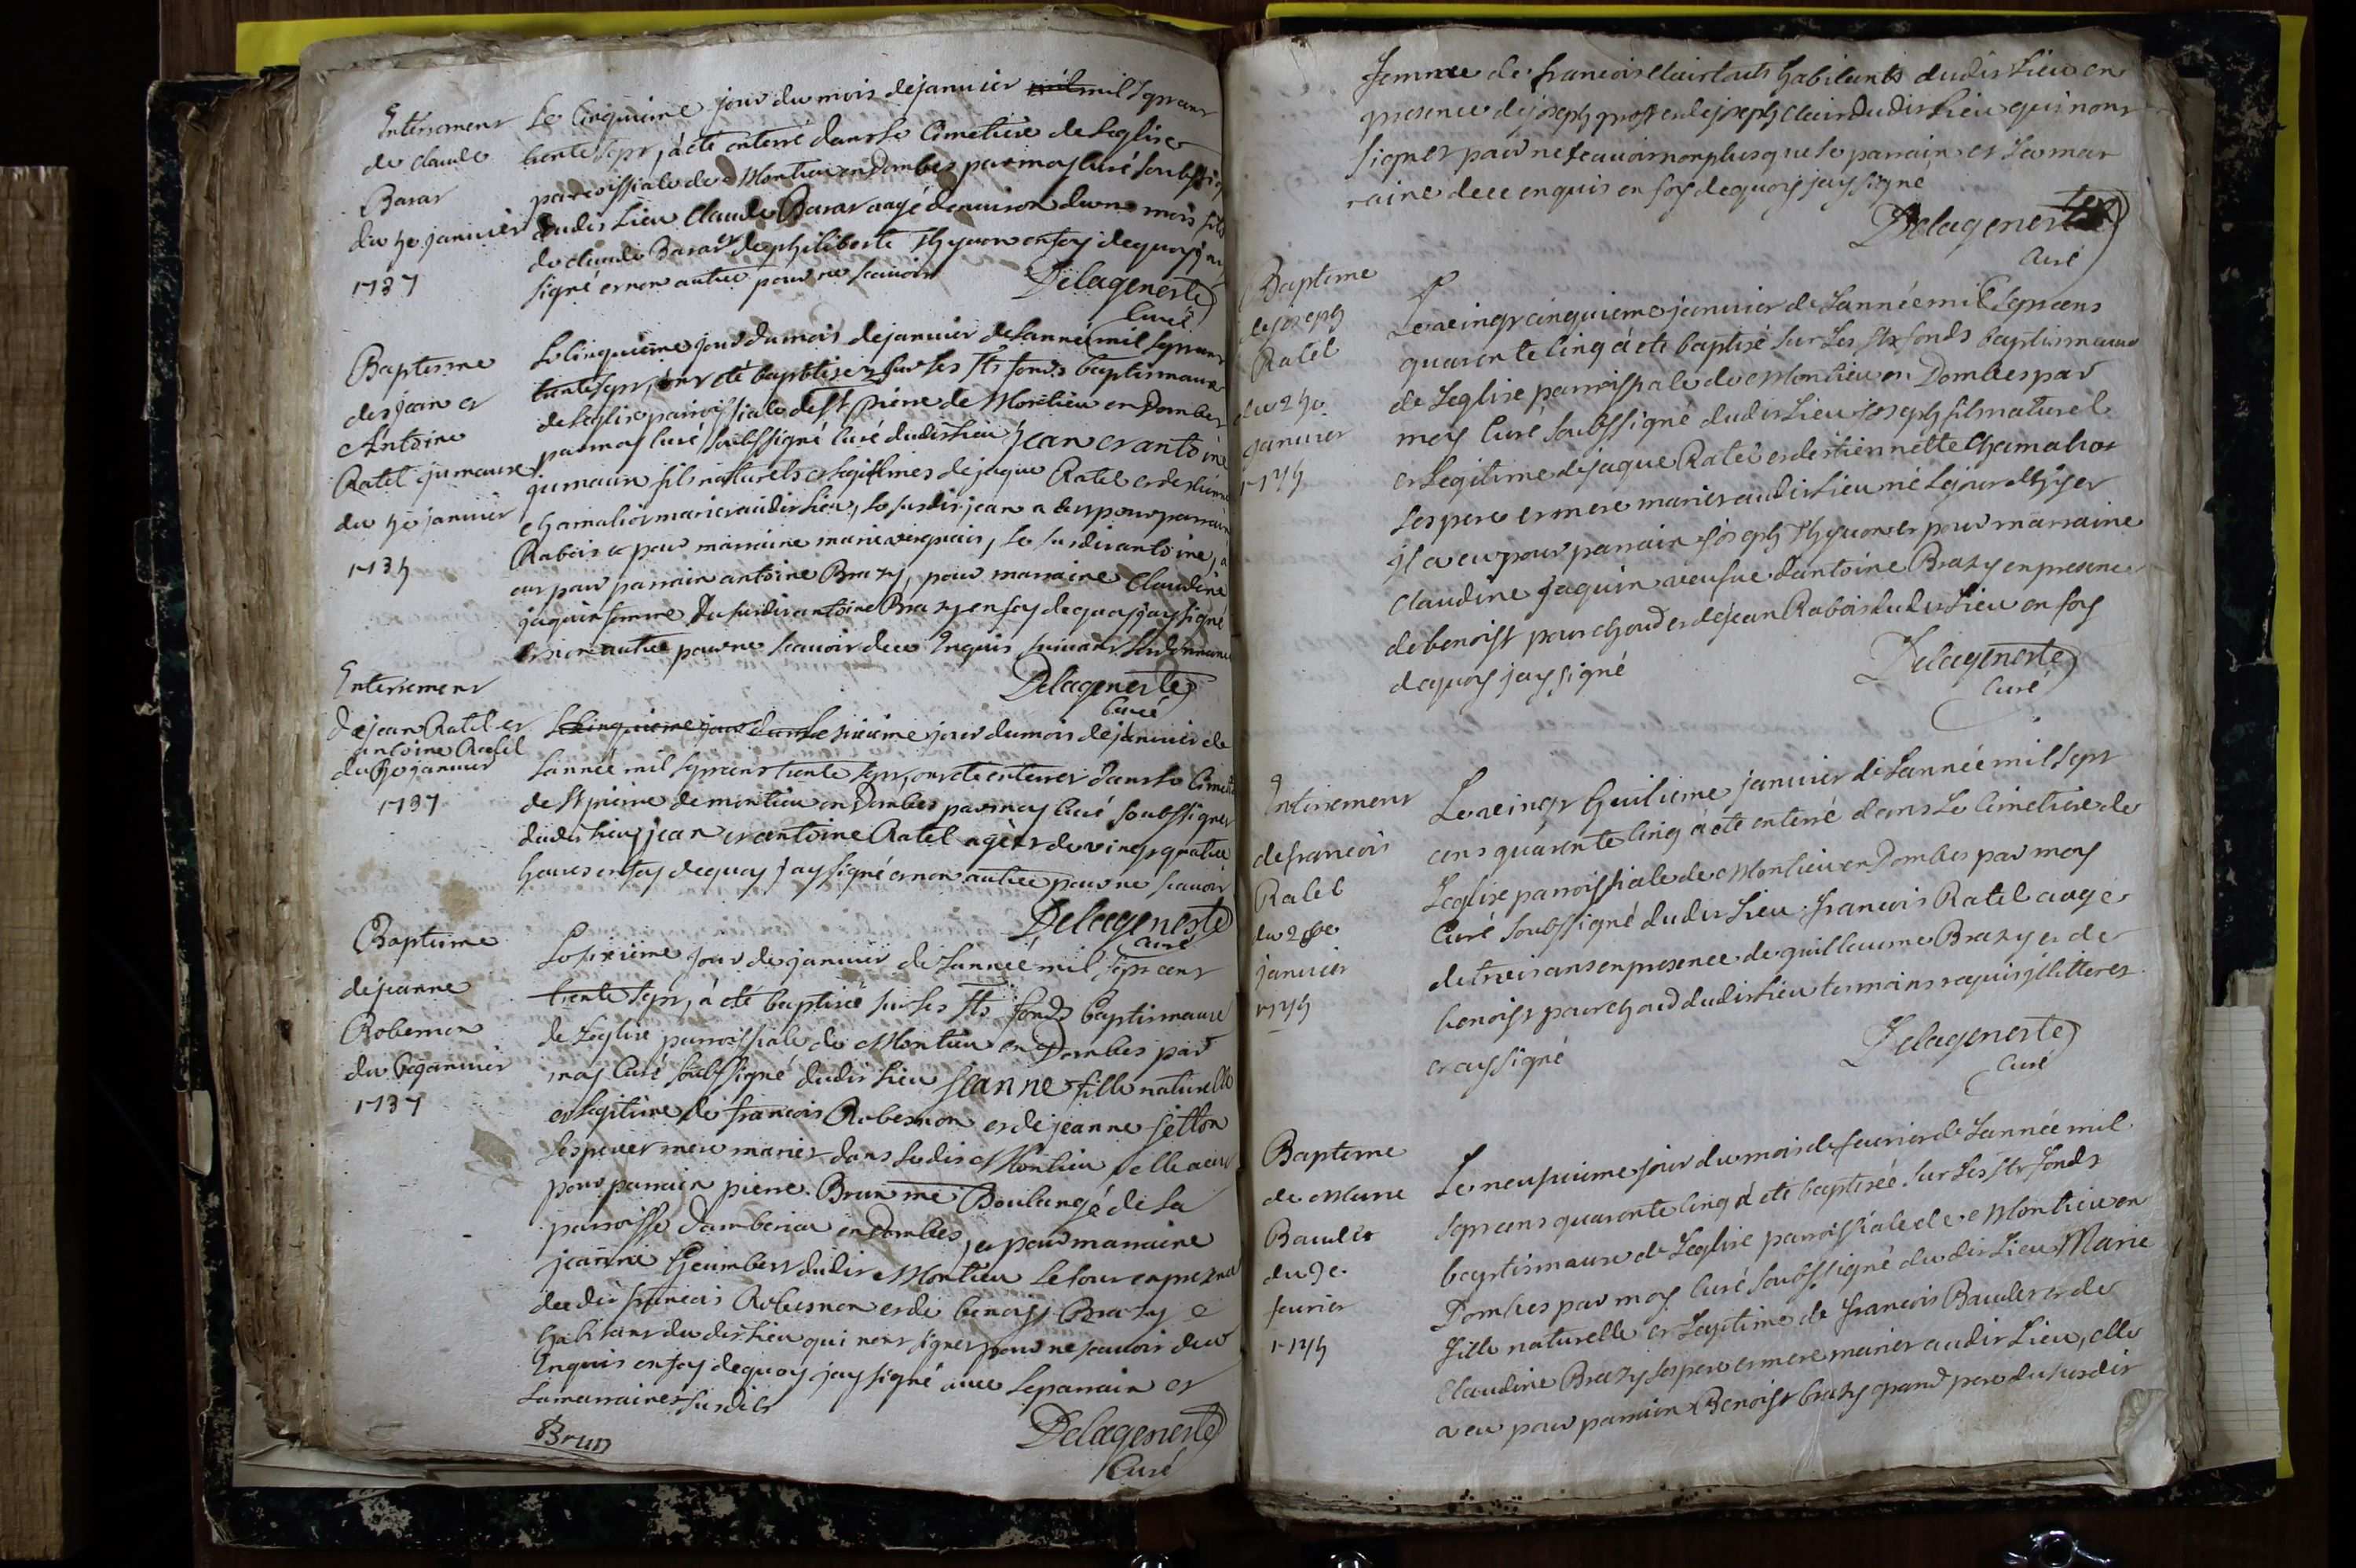 Enterrement
de claude
Barar
du 5e janvier
1737
Le Cinquieme jour du mois de janvier mil mil sept cens
trente sept, à été enterré dans le Cimetiere de Leglise
parroissiale de Montieu en Dombes par moy Curé soubssig
dudit Lieu Claude Barar aagé denviron dun mois fils
de claude Barar et de philiberte Thyvon en foy dequoy jay
signé et non autre pour ne scavoir
Delageneste
Curé
Baptesme
des jean et
Antoine
Ratel jumeaux
du 5e janvier
1737
Le Cinquieme jour du mois de janvier de Lannée mil sept cens
trente sept, ont été baptisez sur les sts fonds baptismaux
de Leglise parroissiale de St pierre de Montieu en Dombes
par moy curé soubssigné Curé dudit Lieu jean et antoine
jumeaux fils naturels et legitimes de jaque Ratel et destienne
chamaliot mariez audit Lieu, le susdit jean a eu pour parrain
Rabois et pour marraine marie, le susdit antoine, a
eu pour parrain antoine Brazy, pour marraine Claudine
jaquin femme du susdit antoine Brazy en foy dequoy jay signé
et non autre pour ne scavoir de ce Enquis suivant Lordonnance
Delageneste
Curé
Enterrement
de jean Ratel et
antoine Ratel
du 6e janvier
1737
Le Cinquieme jour du Le sixieme jour du mois de janvier de
Lannée mil sept cens trente sept, ont été enterrez dans le Cimetie
de St pierre de montieu en Dombes par moy Curé soubssigner
dudit Lieu, jean et antoine Ratel agées de vingt quatre
heures en foy dequoy jay signé et non autre pour ne scavoir
Delageneste
Curé
Baptesme
de jeanne
Robesnon
du 6e janvier
1737
Le sixieme jour de janvier de Lannée mil sept cens
trente sept, à été baptisée sur les sts fonds baptismaux
de Leglise parroissiale de Montieu en Dombes par
moy Curé soubssigné dudit Lieu jeanne fille naturelle
et legitime de francois Robesnon et de jeanne jetton
ses pere et mere mariez dans ledit Montieu, elle a eu
pour parrain pierre Brun me Boulangé de la
parroisse damberieu en Dombes, et pour marraine
jeanne humbert dudit Montieu Le tout en presence
dudit francois Robesnon et de benoist Brazy
habitans dudit Lieu qui nont signer pour ne scavoir de ce
Enquis en foy dequoy jay signé avec Le parrain et
La marraine susdits
Brun
Delageneste
Curé
femme de francois Clair touts habitants dudit Lieu en
presence de joseph gros et de joseph Clair dudit Lieu qui nont
signer pour ne scavoir non plus que le parrain et La mar
raine de ce enquis en foy dequoy jay signé
Delageneste
Curé
Bapteme
de joseph
Ratel
du 25e
janvier
1745
Le vingt cinquieme janvier de Lannée mil sept cens
quarente cinq à été baptisé sur Les sts fonds baptismaux
de Leglise parroissiale de Montieu en Dombes par
moy Curé soubssigné dudit Lieu joseph fils naturel
et legitime de jaque Ratel et destiennette Chamaliot
ses pere et mere mariez audit Lieu né Le jour dhyer
il a eu pour parrain joseph Thyvon et pour marraine
Claudine jaquin veufve dantoine Brazy en presence
de benoist pourchoud et de jean Rabois dudit Lieu en foy
dequoy jay signé
Delageneste
Curé
Enterrement
de francois
Ratel
du 28e
janvier
1745
Le vingt huitieme janvier de Lannée mil sept
cens quarente cinq à été enterré dans Le Cimetiere de
Leglise parroissiale de Montieu en Dombes par moy
Curé soubssigné dudit Lieu francois Ratel aagé
de trois ans en presence de guillaume Brazy et de
benoist pourchoud dudit Lieu temoins requis jlitteres
et ay signé
Delageneste
Curé
Baptême
de Marie
Baudet
du 9e
fevrier
1745
Le neufvieme jour du mois de fevrier de Lannée mil
sept cens quarente cinq à été baptisée sur Les sts fonds
baptismaux de Leglise parroissiale de Montieu en
Dombes par moy Curé soubssigné dudit Lieu Marie
fille naturelle et Legitime de francois Baudet et de
Claudine Brazy ses pere et mere mariez audit Lieu, elle
a eu pour parrain Benoist brazy grand pere du susdit